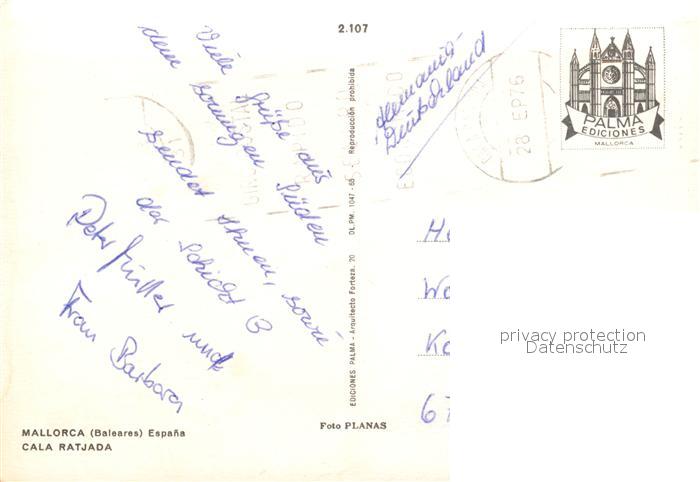 2.107
Viele Grüße aus
dem sonnigen Süden
sendet Ihnen, sowie
der Schicht B
Peter Müller und
Frau Barbara
Alemania-
Deutschland
28 EP76
PALMA
EDICIONES
MALLORCA
EDICIONES PALMA - Arquitecto Forteza, 20 DL.PM. 1047 - 65 - Reproducción prohibida
He
We
Ko
67
privacy protection
Datenschutz
Foto PLANAS
MALLORCA (Baleares) España
CALA RATJADA